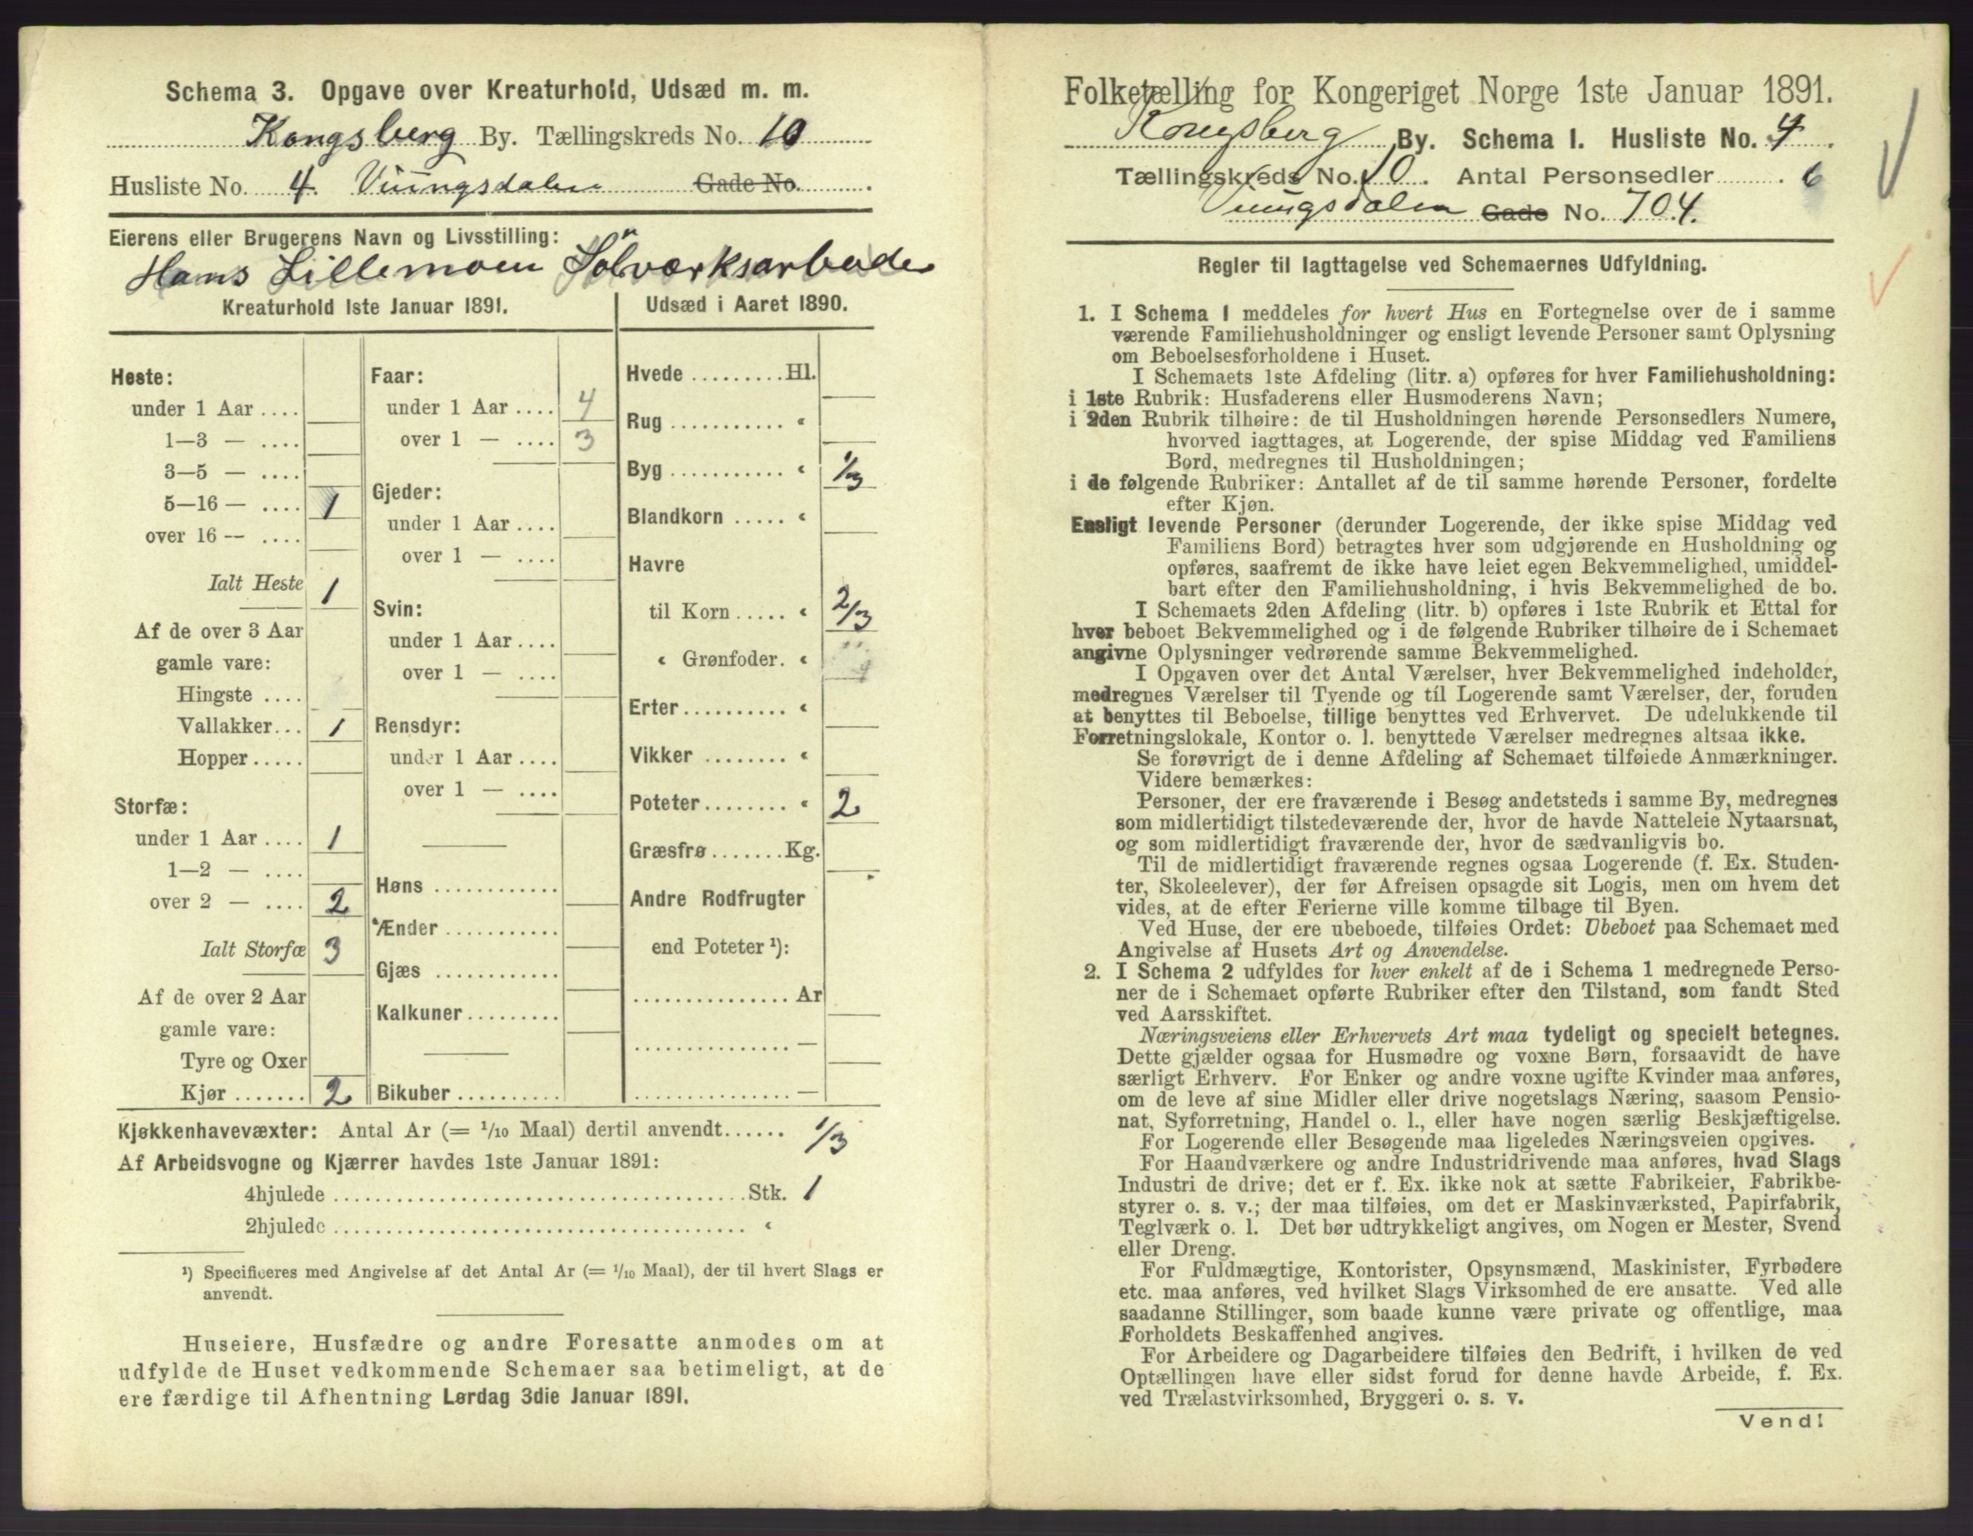 Schema 3. Opgave over Kreaturhold, Udsæd m. m.
Kongsberg By. Tællingskreds No. 10
Husliste No. 4 Vinungsdalen Gade No.
Eierens eller Brugerens Navn og Livsstilling:
Hans Lillemoen Sölværksarbeide
Kreaturhold 1ste Januar 1891.
Heste:
under 1 Aar ....
1—3 — ....
3—5 — ....
5—16 — .... 1
over 16 — ....
Ialt Heste 1
Af de over 3 Aar
gamle vare:
Hingste ....
Vallakker... 1
Hopper.....
Storfæ:
under 1 Aar .... 1
1—2 — ....
over 2 — .... 2
Ialt Storfæ 3
Af de over 2 Aar
gamle vare:
Tyre og Oxer
Kjør ....... 2
Faar:
under 1 Aar .... 4
over 1 — .... 3
Gjeder:
under 1 Aar ....
over 1 — ....
Svin:
under 1 Aar ....
over 1 — ....
Rensdyr:
under 1 Aar ....
over 1 — ....
Høns ............
Ænder ...........
Gjæs ............
Kalkuner.........
Bikuber ..........
Udsæd i Aaret 1890.
Hvede .........Hl.
Rug ........... «
Byg ........... « 1/3
Blandkorn ..... «
Havre
til Korn ..... « 2/3
« Grønfoder. «
Erter .......... «
Vikker ........ «
Poteter........ « 2
Græsfrø .......Kg.
Andre Rodfrugter
end Poteter ¹):
............... Ar
............... —
............... —
Kjøkkenhavevæxter: Antal Ar (= 1/10 Maal) dertil anvendt...... 1/3
Af Arbeidsvogne og Kjærrer havdes 1ste Januar 1891:
4hjulede ........................................Stk. 1
2hjulede ........................................ «
¹) Specificeres med Angivelse af det Antal Ar (= 1/10 Maal), der til hvert Slags er
anvendt.
Huseiere, Husfædre og andre Foresatte anmodes om at
udfylde de Huset vedkommende Schemaer saa betimeligt, at de
ere færdige til Afhentning Lørdag 3die Januar 1891.
Folketælling for Kongeriget Norge 1ste Januar 1891.
Kongsberg By. Schema I. Husliste No. 4.
Tællingskreds No. 10. Antal Personsedler . 6
Vinungsdalen Gade No. 704.
Regler til Iagttagelse ved Schemaernes Udfyldning.
1. I Schema 1 meddeles for hvert Hus en Fortegnelse over de i samme
værende Familiehusholdninger og ensligt levende Personer samt Oplysning
om Beboelsesforholdene i Huset.
I Schemaets 1ste Afdeling (litr. a) opføres for hver Familiehusholdning:
i 1ste Rubrik: Husfaderens eller Husmoderens Navn;
i 2den Rubrik tilhøire: de til Husholdningen hørende Personsedlers Numere,
hvorved iagttages, at Logerende, der spise Middag ved Familiens
Bord, medregnes til Husholdningen;
i de følgende Rubriker: Antallet af de til samme hørende Personer, fordelte
efter Kjøn.
Ensligt levende Personer (derunder Logerende, der ikke spise Middag ved
Familiens Bord) betragtes hver som udgjørende en Husholdning og
opføres, saafremt de ikke have leiet egen Bekvemmelighed, umiddel-
bart efter den Familiehusholdning, i hvis Bekvemmelighed de bo.
I Schemaets 2den Afdeling (litr. b) opføres i 1ste Rubrik et Ettal for
hver beboet Bekvemmelighed og i de følgende Rubriker tilhøire de i Schemaet
angivne Oplysninger vedrørende samme Bekvemmelighed.
I Opgaven over det Antal Værelser, hver Bekvemmelighed indeholder,
medregnes Værelser til Tyende og til Logerende samt Værelser, der, foruden
at benyttes til Beboelse, tillige benyttes ved Erhvervet. De udelukkende til
Forretningslokale, Kontor o. l. benyttede Værelser medregnes altsaa ikke.
Se forøvrigt de i denne Afdeling af Schemaet tilføiede Anmærkninger.
Videre bemærkes:
Personer, der ere fraværende i Besøg andetsteds i samme By, medregnes
som midlertidigt tilstedeværende der, hvor de havde Natteleie Nytaarsnat,
og som midlertidigt fraværende der, hvor de sædvanligvis bo.
Til de midlertidigt fraværende regnes ogsaa Logerende (f. Ex. Studen-
ter, Skoleelever), der før Afreisen opsagde sit Logis, men om hvem det
vides, at de efter Ferierne ville komme tilbage til Byen.
Ved Huse, der ere ubeboede, tilføies Ordet: Ubeboet paa Schemaet med
Angivelse af Husets Art og Anvendelse.
2. I Schema 2 udfyldes for hver enkelt af de i Schema 1 medregnede Perso-
ner de i Schemaet opførte Rubriker efter den Tilstand, som fandt Sted
ved Aarsskiftet.
Næringsveiens eller Erhvervets Art maa tydeligt og specielt betegnes.
Dette gjælder ogsaa for Husmødre og voxne Børn, forsaavidt de have
særligt Erhverv. For Enker og andre voxne ugifte Kvinder maa anføres,
om de leve af sine Midler eller drive nogetslags Næring, saasom Pensio-
nat, Syforretning, Handel o. l., eller have nogen særlig Beskjæftigelse.
For Logerende eller Besøgende maa ligeledes Næringsveien opgives.
For Haandværkere og andre Industridrivende maa anføres, hvad Slags
Industri de drive; det er f. Ex. ikke nok at sætte Fabrikeier, Fabrikbe-
styrer o. s. v.; der maa tilføies, om det er Maskinværksted, Papirfabrik,
Teglværk o. l. Det bør udtrykkeligt angives, om Nogen er Mester, Svend
eller Dreng.
For Fuldmægtige, Kontorister, Opsynsmænd, Maskinister, Fyrbødere
etc. maa anføres, ved hvilket Slags Virksomhed de ere ansatte. Ved alle
saadanne Stillinger, som baade kunne være private og offentlige, maa
Forholdets Beskaffenhed angives.
For Arbeidere og Dagarbeidere tilføies den Bedrift, i hvilken de ved
Optællingen have eller sidst forud for denne havde Arbeide, f. Ex.
ved Trælastvirksomhed, Bryggeri o. s. v.
Vend!